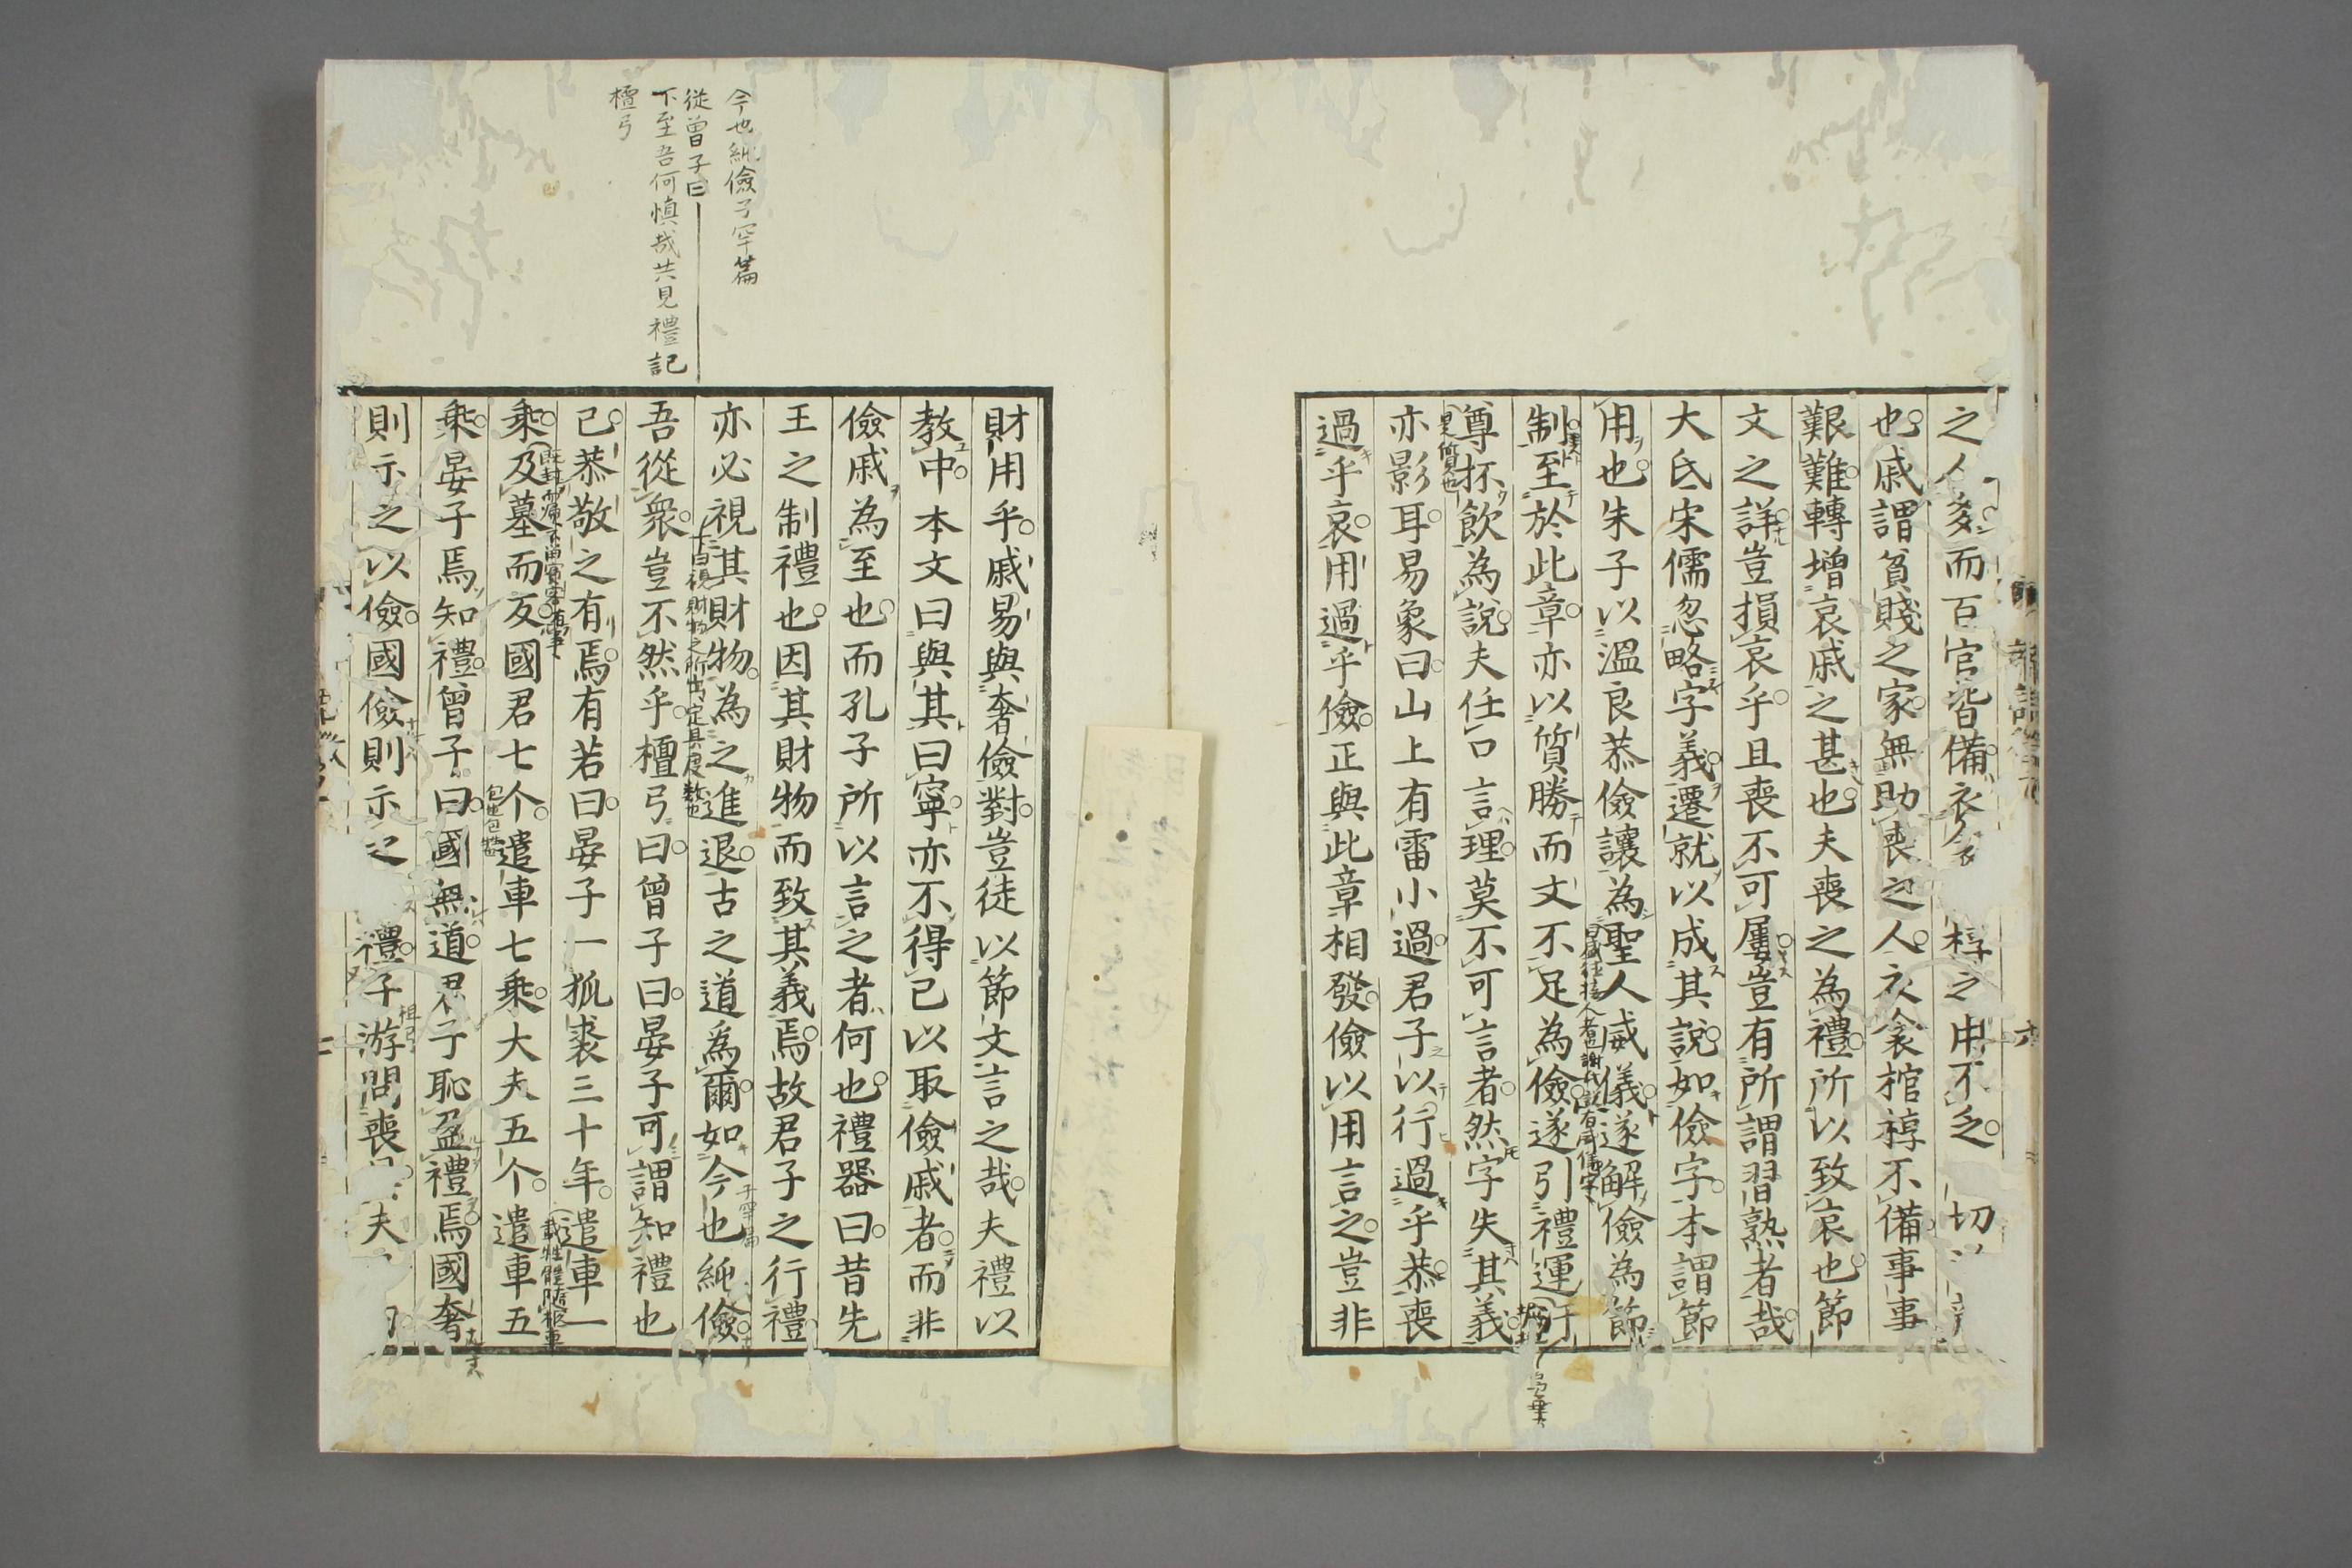 之人多而百官皆備衣衾　椁之用不乏　切
也戚謂貧賤之家無助喪之人衣衾棺椁不備事事
艱難轉增哀戚之甚也夫喪之為禮所以致哀也節
文之詳豈損哀乎且喪不可屢豈有所謂習熟者哉
大氐宋儒忽略字義遷就以成其說如儉字本謂節
用也朱子以溫良恭儉讓為聖人威儀遂解儉為節
制至於此章亦以質勝而文不足為儉遂引禮運汙
尊抔飲為說夫任口言理莫不可言者然字失其義
亦影耳易象曰山上有雷小過君子以行過乎恭喪
過乎哀用過乎儉正與此章相發儉以用言之豈非
今也純儉子罕篇
從曾子曰
下至吾何慎哉共見禮記
檀弓
財用乎戚易與奢儉對豈徒以節文言之哉夫禮以
教中本文曰與其曰寧亦不得已以取儉戚者而非
儉戚為至也而孔子所以言之者何也禮器曰昔先
王之制禮也因其財物而致其義焉故君子之行禮
亦必視其財物為之進退古之道為爾如今也純儉
吾從衆豈不然乎檀弓曰曾子曰晏子可謂知禮也
已恭敬之有焉有若曰晏子一狐裘三十年遣車一
乘及墓而反國君七个遣車七乘大夫五个遣車五
乘晏子焉知禮曾子曰國無道君子恥盈禮焉國奢
則示之以儉國儉則示之　禮子游問喪　夫